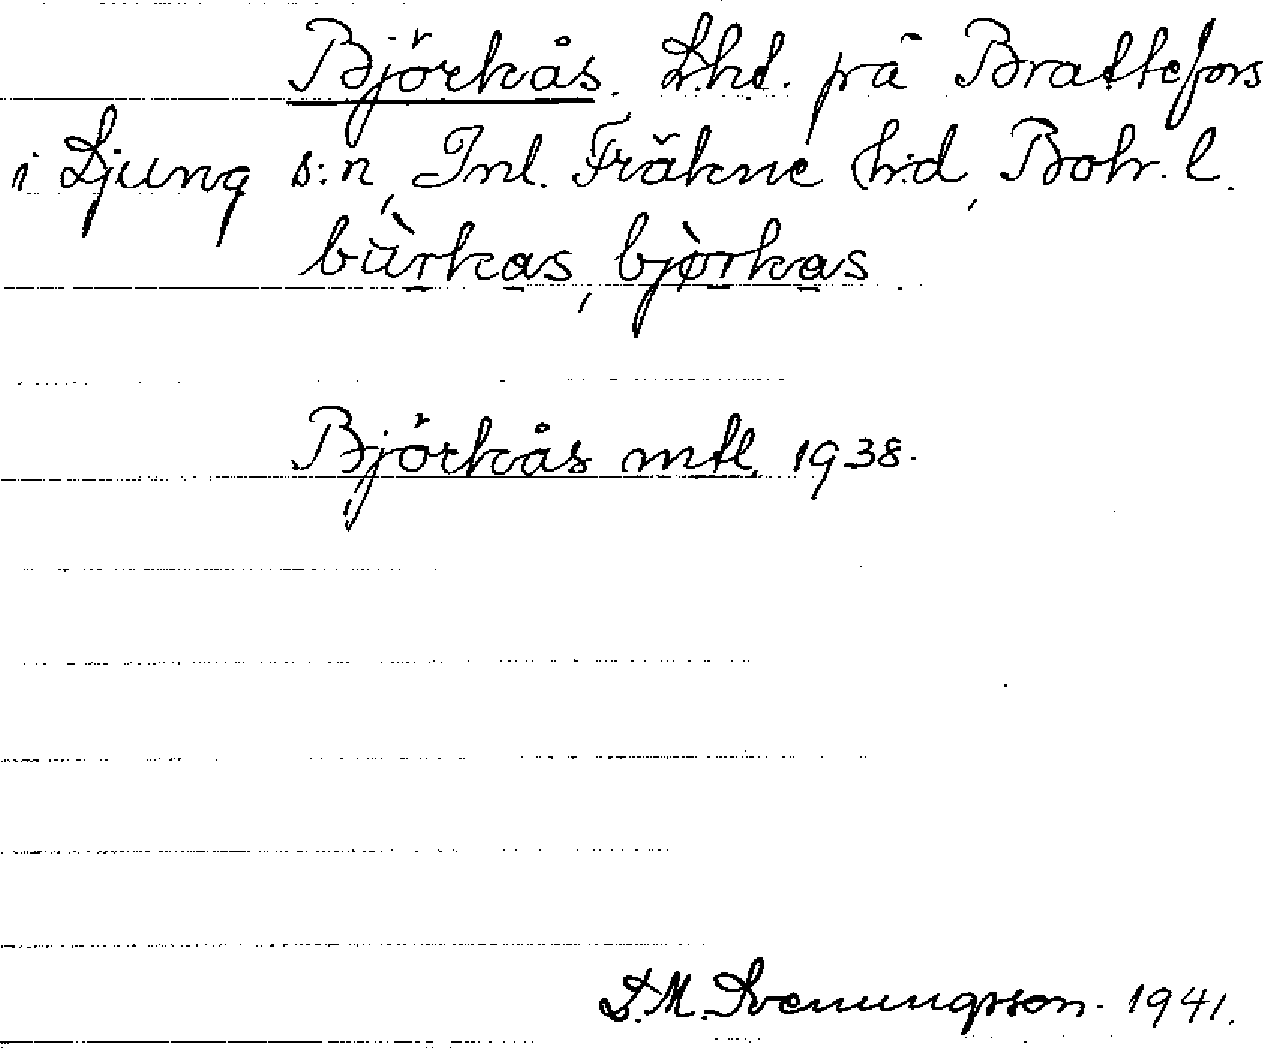 Björkås. Lhd. på Brattefors
i Ljung s:n, Inl. Fräkne h:d, Boh. l.
bùrkas, bjørkas
Björkås mtl. 1938.
S. M. Svenungsson. 1941.